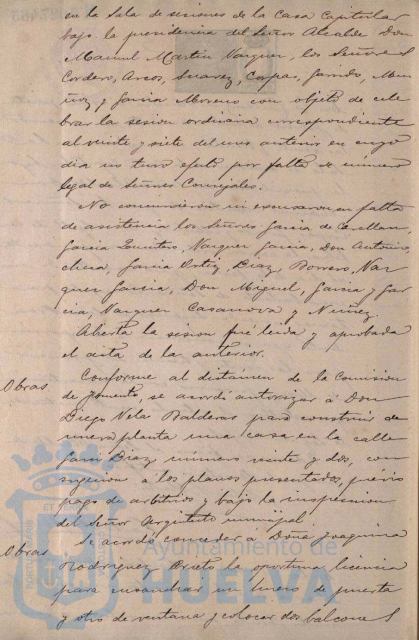 en la Sala de sesiones de la Casa Capitular
bajo la presidencia del Señor Alcalde Don
Manuel Martin Vazquez, los Señores
Cordero, Arcos, Suarez, Corpas, Garrido, Mu-
ñoz y Garcia Moreno con objeto de cele-
brar la sesion ordinaria correspondiente
al veinte y siete del mes anterior en cuyo
dia no tuvo efecto por falta de número
legal de Señores Concejales.
No concurrieron ni escusaron su falta
de asistencia los Señores Garcia
Garcia Vazquez Garcia, Don Antonio
Garcia Ortiz, Diaz, Borrero, Vaz-
quez Garcia, Don Miguel, Garcia y Gar-
cia, Vazquez Casanova y Nuñez.
Abierta la sesion fué leida y aprobada
el acta de la anterior.
Obras
Conforme al dictámen de la Comision
de fomento, se acordó autorizar á Don
Diego Vela Balderas para construir de
nueva planta una casa en la calle
Diaz número veinte y dos, con
sugecion á los planos presentados, prévio
pago de arbitrios y bajo la inspeccion
del Señor Arquitecto municipal
Obras
Se acordó conceder á Doña Joaquina
Rodriguez Prieto la oportuna licencia
para ensanchar un hueco de puerta
y otro de ventana y colocar dos balcones
Ayuntamiento de
HUELVA